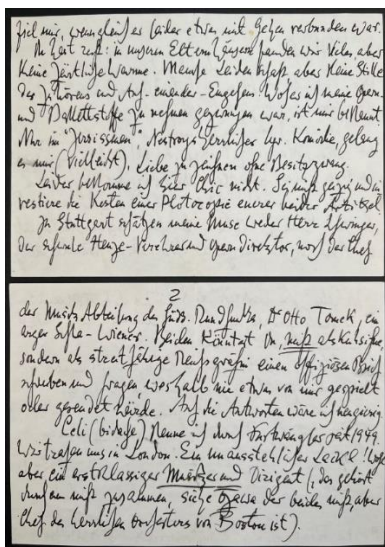 fiel mir, wenngleich es leider etwas mit Gehen verbunden war.
In unseren Elternhäusern fanden wir vieles, aber
keine zärtliche Wärme. Leidenschaft, aber keine Stille
des und war, ist mir bekannt
Nur im "Zerrissenen", Nestroys herrlicher Komödie, gelang
es mir (vielleicht), Liebe zu zeichnen ohne Besitzzwang.
Leider bekomme ich hier Chic nicht. Sei nicht geizig und in-
vestiere die Kosten einer Photocopie euerer beider Artikel
In Stuttgart schätzen meine Muse weder Herr
der schwule Henze-Verehrer und Operndirektor, noch der Chef
2
der Musik Abteilung des Südd. Rundfunks, Dr Otto Tomek, ein
arger Wiener. Beiden könntest Du, nicht als
sondern als streitfähige einen offiziösen Brief
schreiben und fragen weshalb nie etwas von mir gespielt
oder gesendet würde. Auf die Antworten wäre ich neugierig
Celi (bidache) kenne ich durch Furtwängler seit 1949.
Wir trafen uns in London. Ein unausstehlicher
aber ein erstklassiger Musiker und Dirigent (, das gehört
durchaus nicht zusammen, siehe Ozawa der beides nicht, aber
Chef des herrlichen Orchesters von Boston ist).